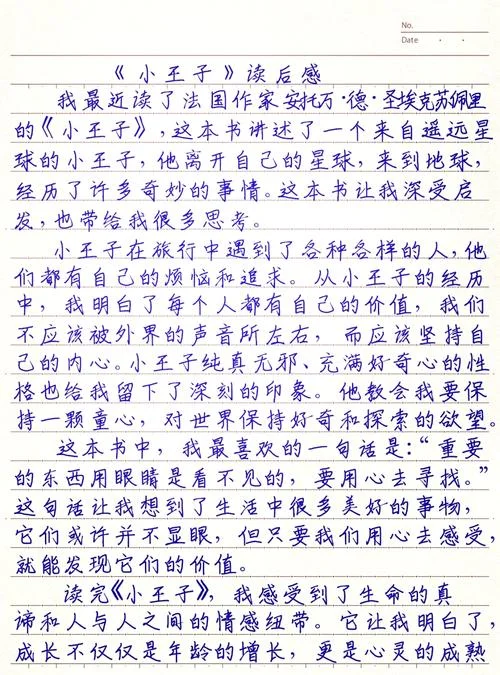 No.
Date
《小王子》读后感
我最近读了法国作家安托万·德·圣埃克苏佩里
的《小王子》,这本书讲述了一个来自遥远星
球的小王子,他离开自己的星球,来到地球,
经历了许多奇妙的事情。这本书让我深受启
发,也带给我很多思考。
小王子在旅行中遇到了各种各样的人,他
们都有自己的烦恼和追求。从小王子的经历
中,我明白了每个人都有自己的价值,我们
不应该被外界的声音所左右,而应该坚持自
己的内心。小王子纯真无邪、充满好奇心的性
格也给我留下了深刻的印象。他教会我要保
持一颗童心,对世界保持好奇和探索的欲望。
这本书中,我最喜欢的一句话是:“重要
的东西用眼睛是看不见的,要用心去寻找。”
这句话让我想到了生活中很多美好的事物,
它们或许并不显眼,但只要我们用心去感受,
就能发现它们的价值。
读完《小王子》,我感受到了生命的真
谛和人与人之间的情感纽带。它让我明白了,
成长不仅仅是年龄的增长,更是心灵的成熟